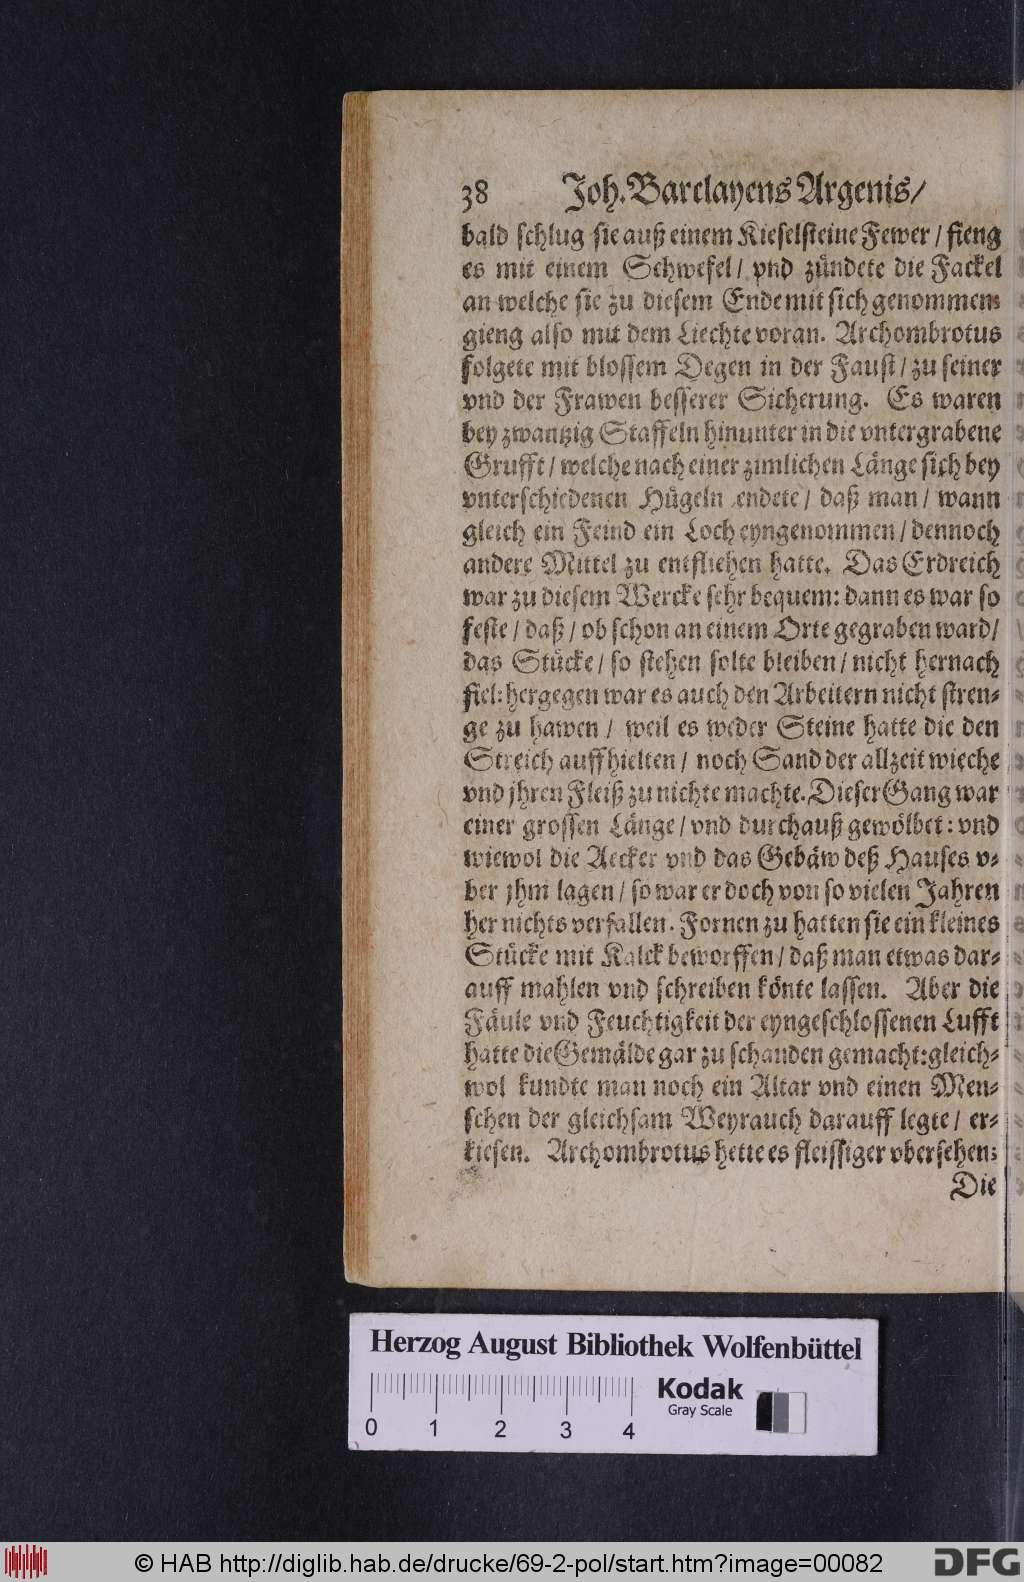 38 Joh. Barclayens Argenis/
bald schlug sie auß einem Kieselsteine Fewer / fieng
es mit einem Schwefel / vnd zündete die Fackel
an welche sie zu diesem Ende mit sich genommen:
gieng also mit dem Liechte voran. Archombrotus
folgete mit blossem Degen in der Faust / zu seiner
vnd der Frawen besserer Sicherung. Es waren
bey zwantzig Staffeln hinunter in die vntergrabene
Grufft / welche nach einer zimlichen Länge sich bey
vnterschiedenen Hügeln endete / daß man / wann
gleich ein Feind ein Loch eyngenommen / dennoch
andere Mittel zu entfliehen hatte. Das Erdreich
war zu diesem Wercke sehr bequem: dann es war so
feste / daß / ob schon an einem Orte gegraben ward/
das Stücke / so stehen solte bleiben / nicht hernach
fiel: hergegen war es auch den Arbeitern nicht stren-
ge zu hawen / weil es weder Steine hatte die den
Streich auffhielten / noch Sand der allzeit wieche
vnd jhren Fleiß zu nichte machte. Dieser Gang war
einer grossen Länge / vnd durchauß gewölbet: vnd
wiewol die Aecker vnd das Gebäw deß Hauses v-
ber jhm lagen / so war er doch von so vielen Jahren
her nichts verfallen. Fornen zu hatten sie ein kleines
Stücke mit Kalck beworffen / daß man etwas dar-
auff mahlen vnd schreiben könte lassen. Aber die
Fäule vnd Feuchtigkeit der eyngeschlossenen Lufft
hatte die Gemälde gar zu schanden gemacht: gleich-
wol kundte man noch ein Altar vnd einen Men-
schen der gleichsam Weyrauch darauff legte / er-
kiesen. Archombrotus hette es fleissiger vbersehen:
Die
Herzog August Bibliothek Wolfenbüttel
Kodak
Gray Scale
0 1 2 3 4
© HAB http://diglib.hab.de/drucke/69-2-pol/start.htm?image=00082
DFG